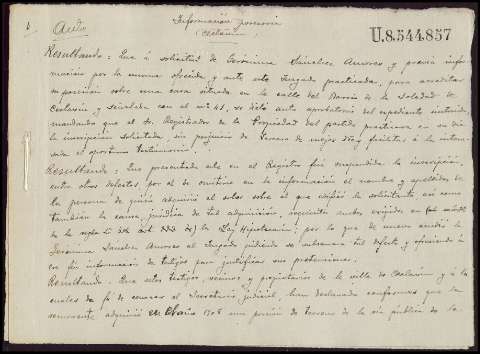 Información posesoria
(Ceclavín)
U.8.544.857
Auto
Resultando: Que á solicitud de Gerónima Sánchez Amores y previa infor-
mación por la misma ofrecida, y ante este Juzgado practicada, para acreditar
su posesión sobre una casa situada en la calle del Barrio de la Soledad de
Ceclavín, y señalada con el nº 41, se dictó auto aprobatorio del expediente
mandando que el Sr. Registrador de la Propiedad del partido, practicara en su día
la inscripción solicitada sin perjuicio de tercero de mejor dro y facilitar á la intere-
sada el oportuno testimonio.
Resultando: Que presentado este en el Registro fué suspendida la inscripción
entre otros defectos por el de omitirse en la información el nombre y apellidos de
la persona de quien adquirió el solar sobre el que edificó la solicitante así como
también la causa jurídica de tal adquisición, requisitos ambos exigidos en
la regla del art. de la Ley Hipotecaria; por lo que de nuevo acudió la
Gerónima Sánchez Amores al Juzgado pidiendo se subsanara tal defecto y ofreciendo á
con fin información de testigos para justificar sus pretensiones.
Resultando: Que estos testigos, vecinos y propietarios de la villa de Ceclavín y á los
cuales da fe de conocer el Secretario judicial, han declarado conformes que la
recurrente adquirió el año una porción de terreno de la vía pública de la